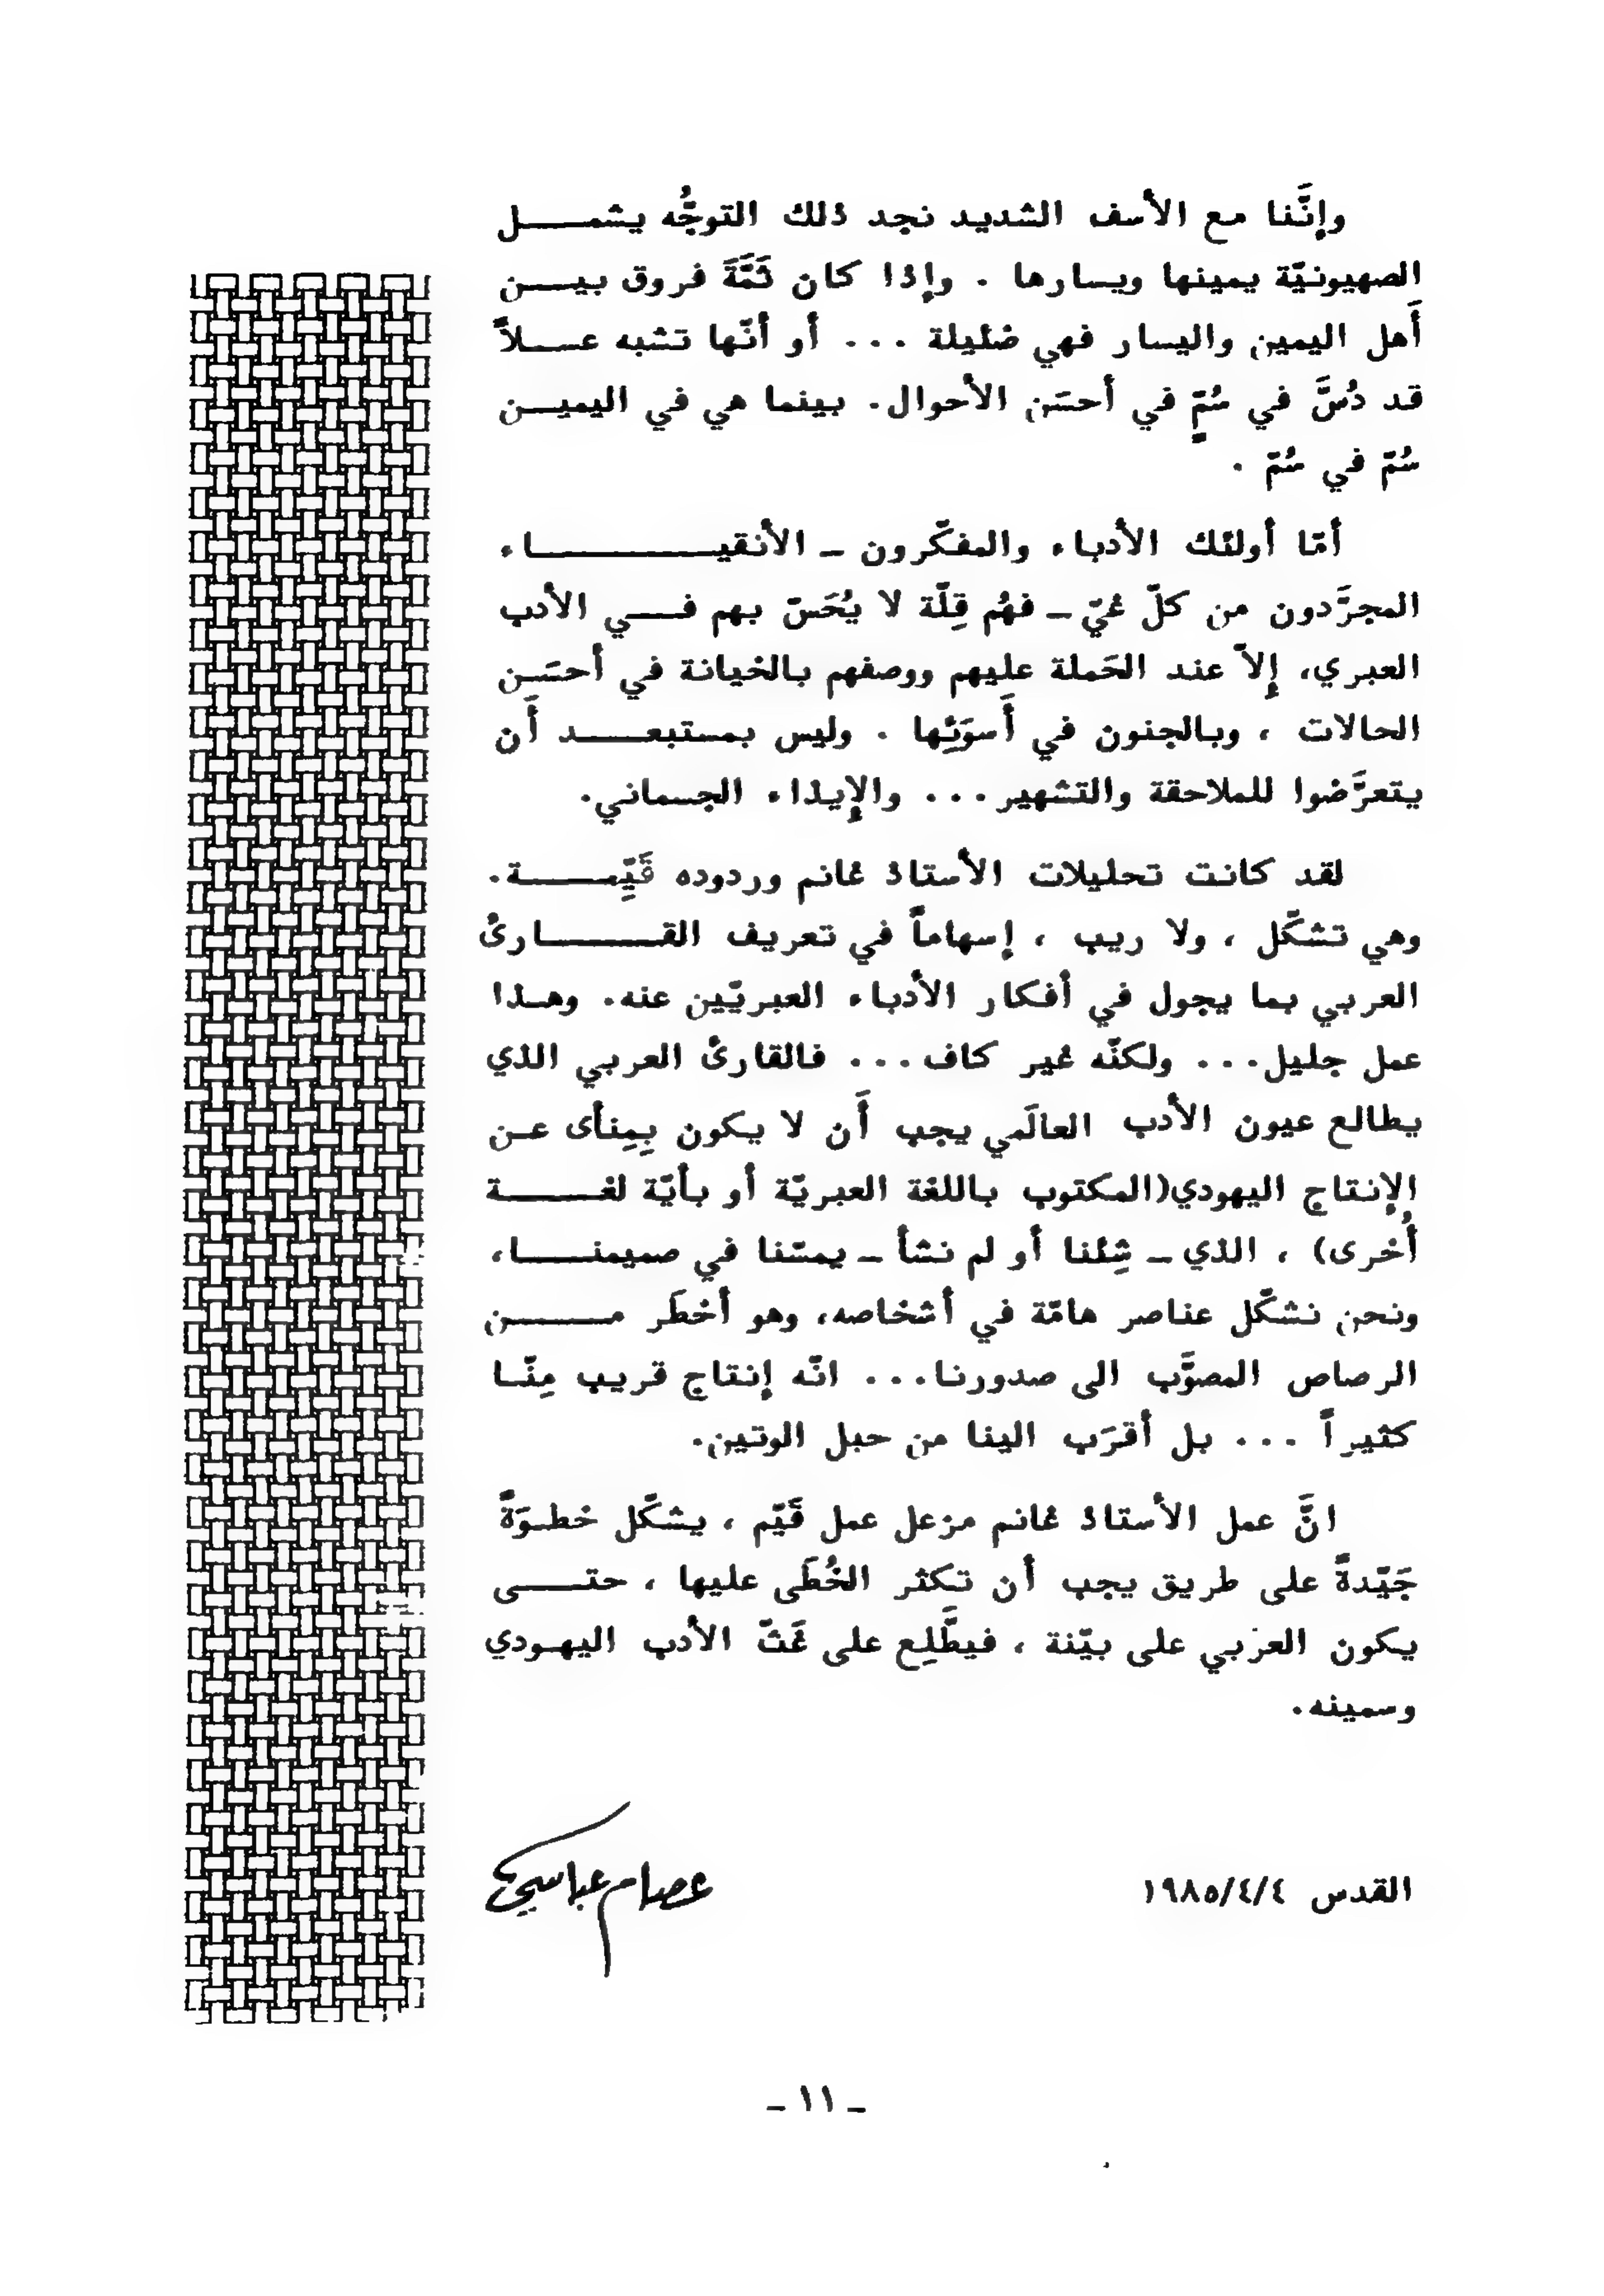 وإنَّنا مع الأسف الشديد نجد ذلك التوجُّه يشمــل
الصهيونيّة يمينها ويسارها . وإذا كان ثَمَّةَ فروق بيــن
أَهل اليمين واليسار فهي ضئيلة ... أو أنّها تشبه عسـلاً
قد دُسَّ في سُمٍّ في أحسَن الأحوال. بينما هي في اليميــن
سُمّ في سُمّ .
أمّا أولئك الأدباء والمفكّرون ـ الأنقيــاء
المجرَّدون من كلّ غيّ ـ فهُم قِلّة لا يُحَسّ بهم فــي الأدب
العبري، إلاّ عند الحَملة عليهم ووصفهم بالخيانة في أحسَـن
الحالات ، وبالجنون في أَسوَئِها . وليس بمستبعــد أَن
يتعرَّضوا للملاحقة والتشهير... والإيذاء الجسماني.
لقد كانت تحليلات الأستاذ غانم وردوده قَيِّمــة.
وهي تشكّل ، ولا ريب ، إسهاماً في تعريف القــارئُ
العربي بما يجول في أفكار الأدباء العبريّين عنه. وهـذا
عمل جليل... ولكنّه غير كاف... فالقارئُ العربي الذي
يطالع عيون الأدب العالَمي يجب أَن لا يكون بِمِنأى عـن
الإنتاج اليهودي(المكتوب باللغة العبريّة أو بأيّة لغــة
أُخرى) ، الذي ـ شِئنا أو لم نشأ ـ يمسّنا في صميمنــا،
ونحن نشكّل عناصر هامّة في أشخاصه، وهو أخطَر مــن
الرصاص المصوَّب الى صدورنا... انّه إنتاج قريب مِنّـا
كثيراً ... بل أقرَب الينا من حبل الوتين.
انَّ عمل الأستاذ غانم مزعل عمل قَيّم ، يشكّل خطـوَةً
جَيّدةً على طريق يجب أن تكثر الخُطَى عليها ، حتــى
يكون العربي على بيّنة ، فيطَّلِع على غَثّ الأدب اليهـودي
وسمينه.
القدس ١٩٨٥/٤/٤
عصام عباسي
ـ ١١ ـ